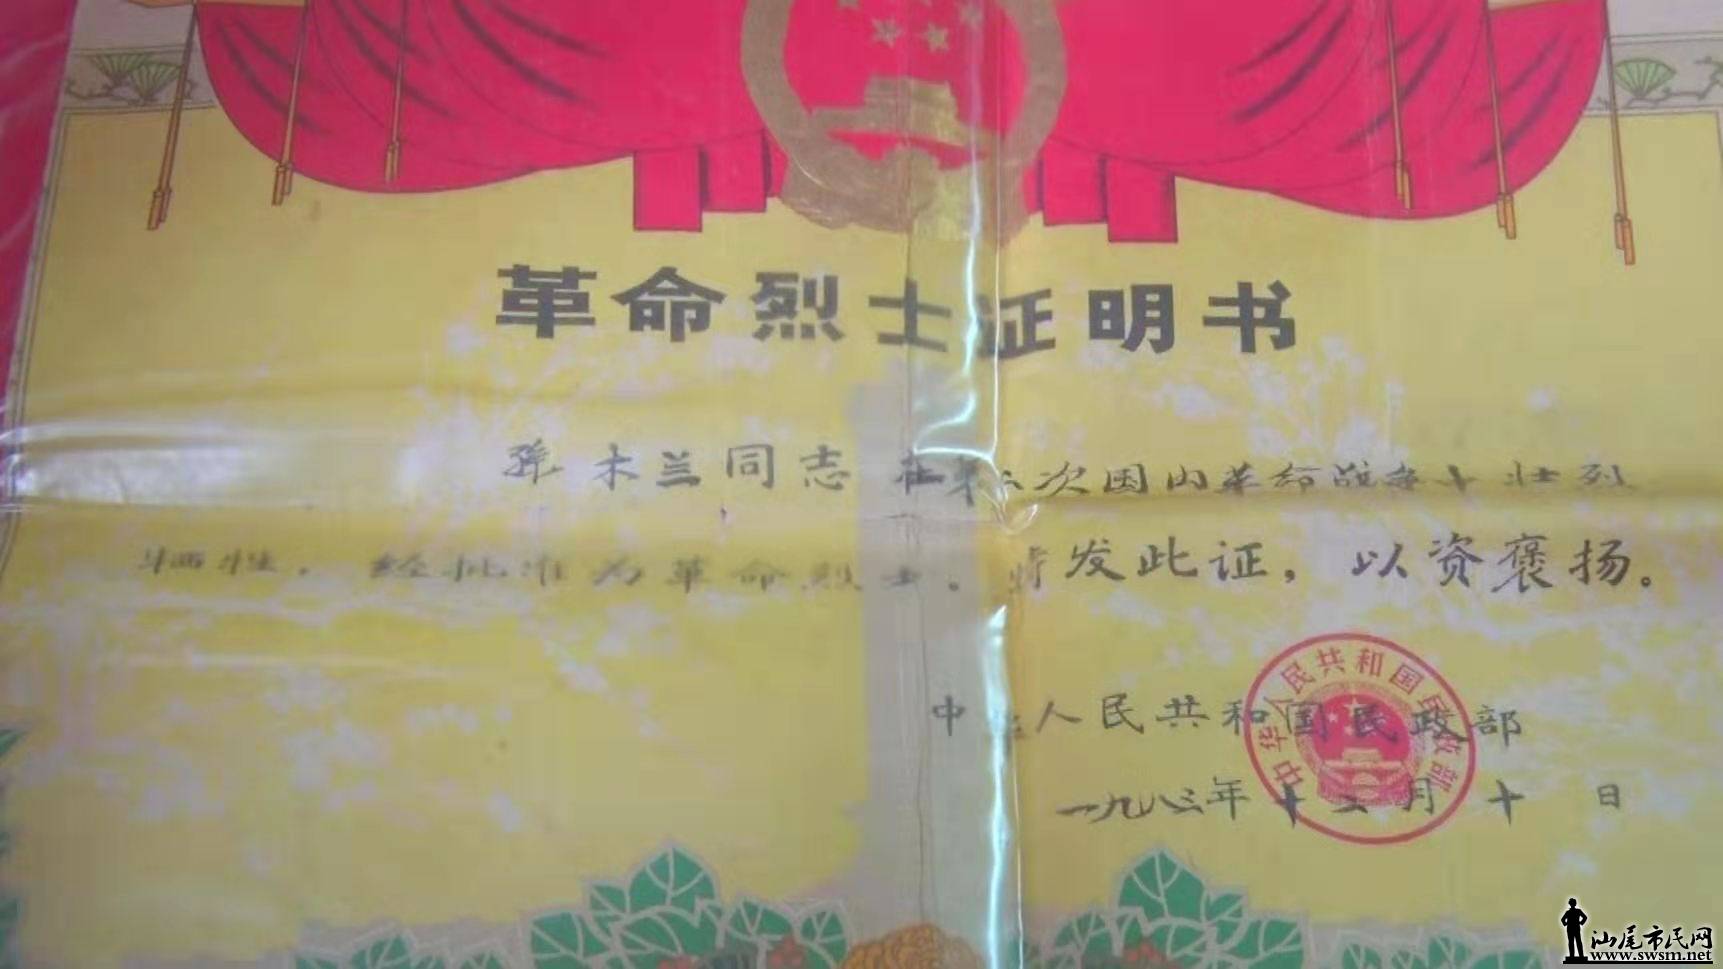 革命烈士证明书
木兰同志在第二次国内革命战争中壮烈
牺牲，经批准为革命烈士。特发此证，以资褒扬。
中华人民共和国民政部
一九八三年十二月十日
中华人民共和国民政部
汕尾市民网
www.swsm.net